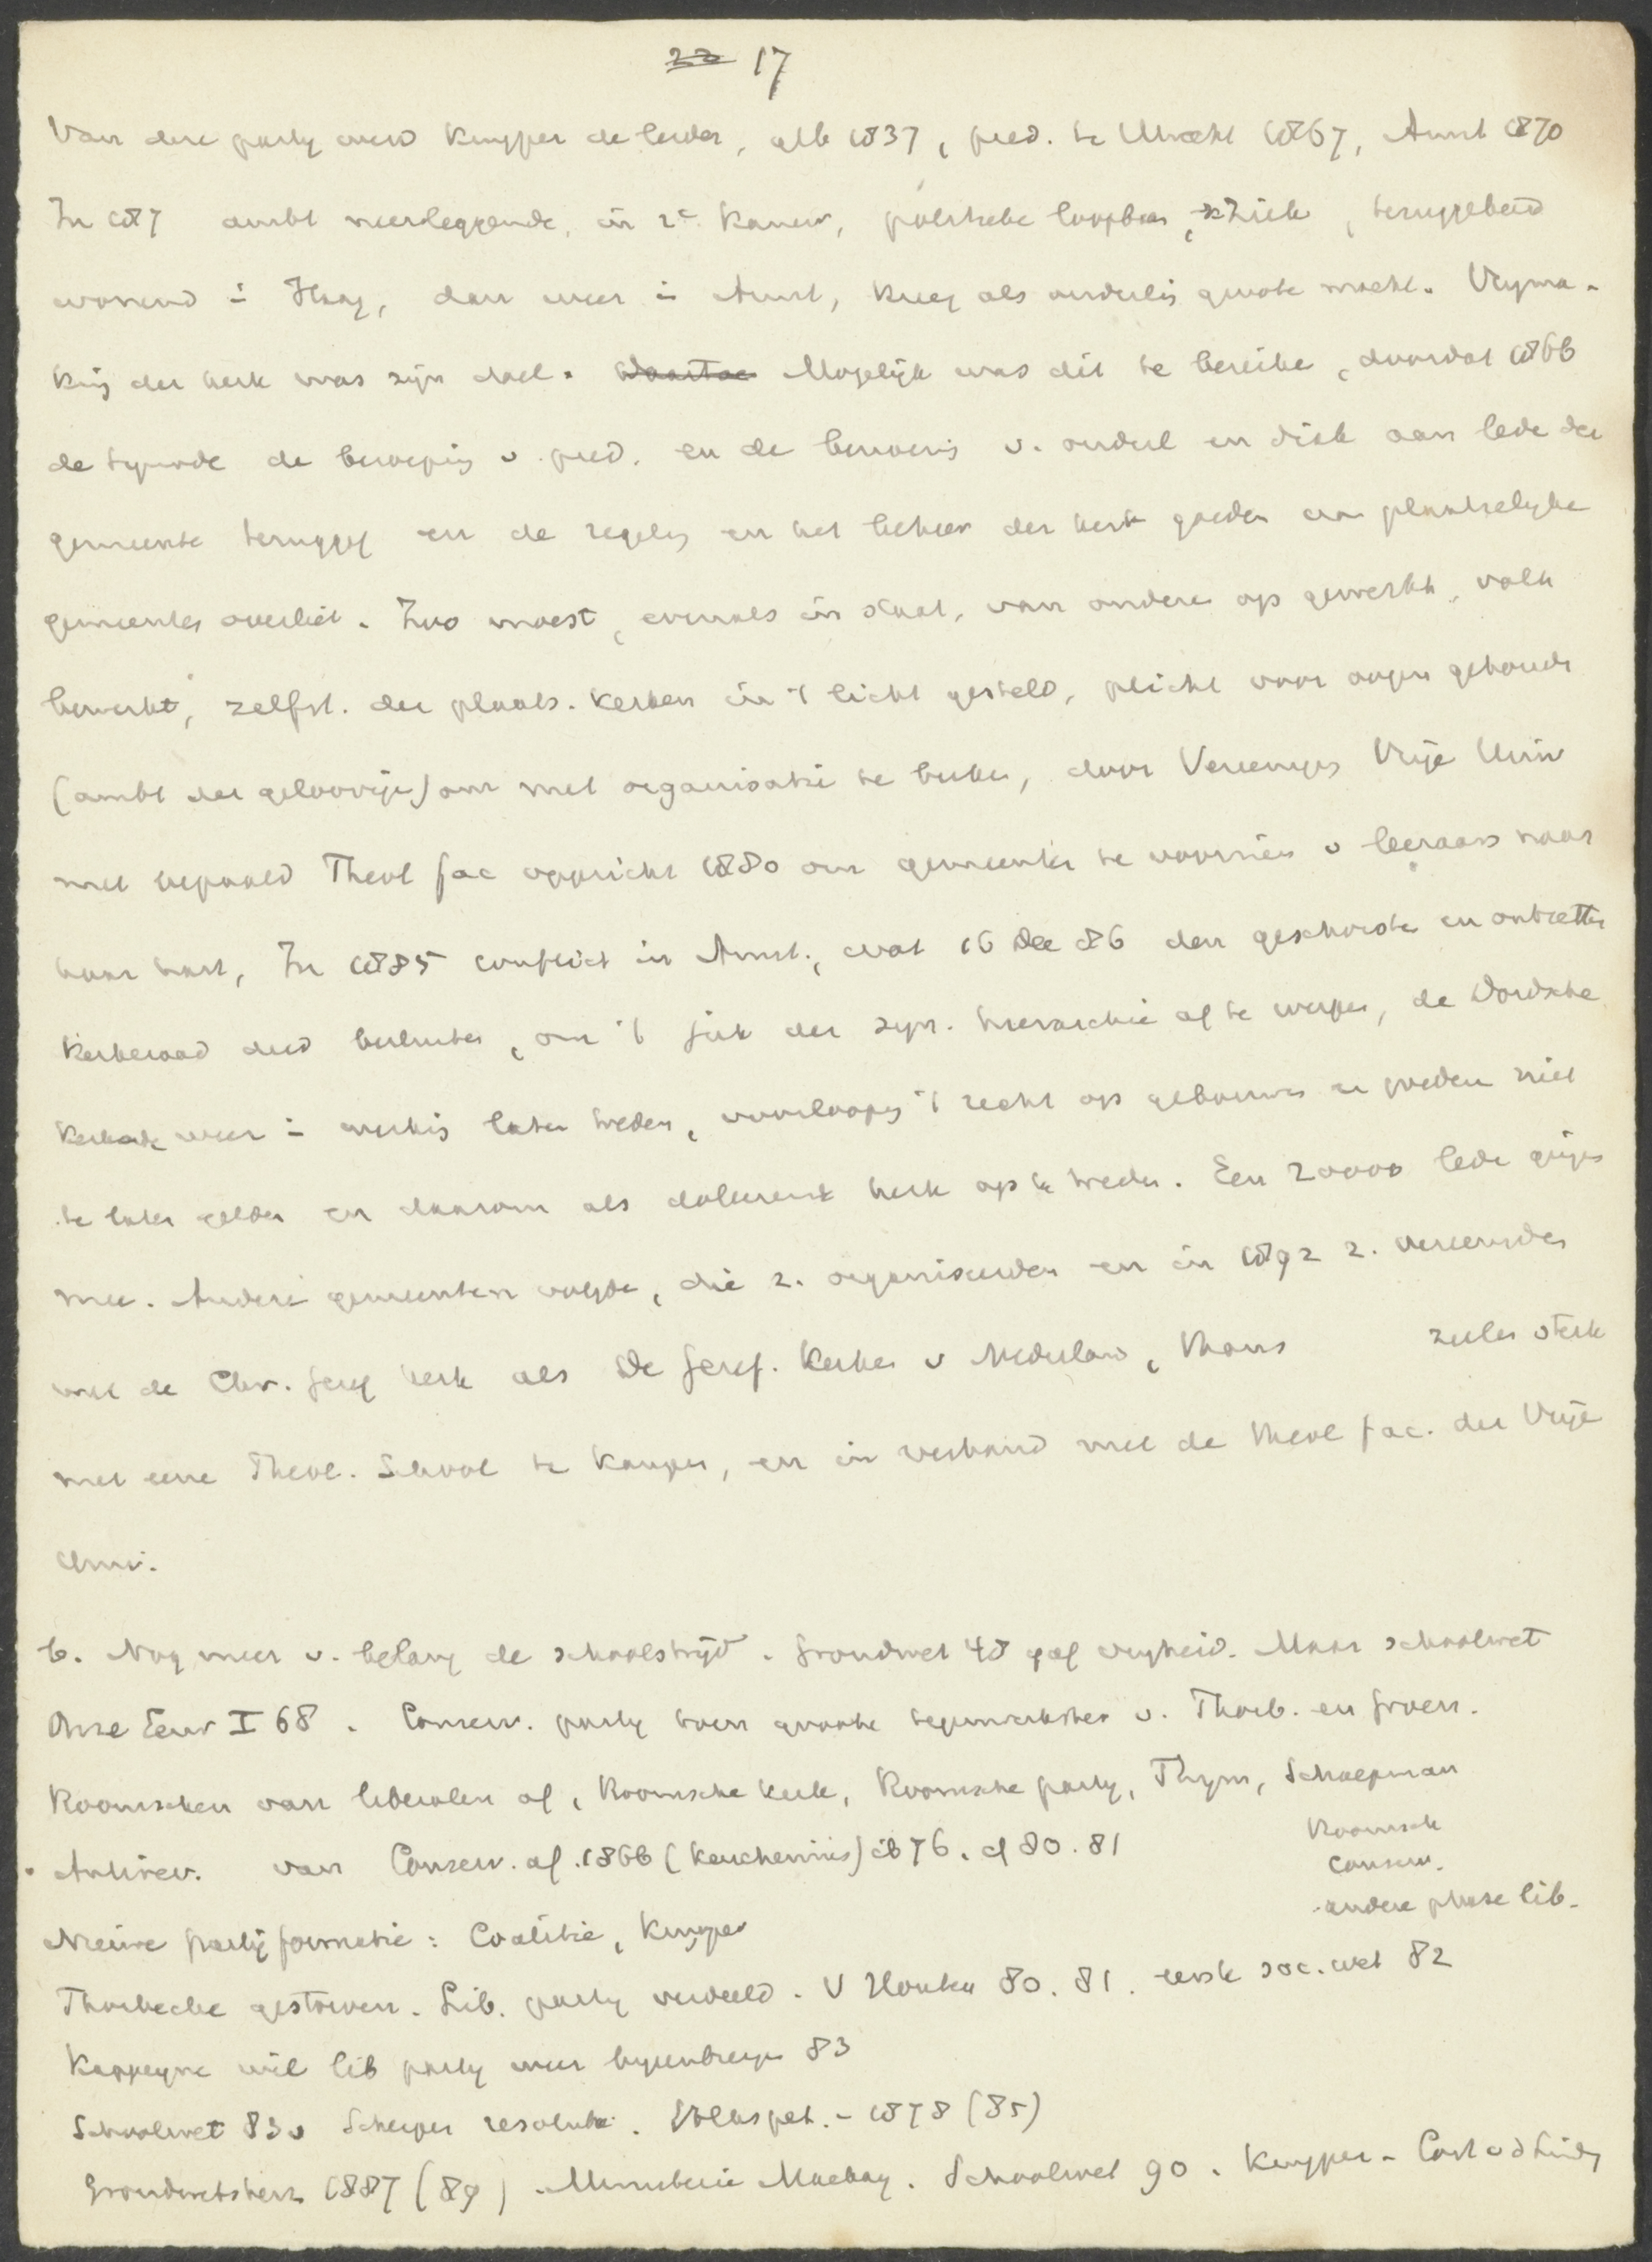 22 17
Van deze party werd Kuyper de leider, geb 1837, pred. te Utrecht 1867, Amst 1870
In 187 ambt neerleggende, in 2e Kamer, politieke loopbaan, ziek, teruggekeerd
wonend in Haag, dan weer in Amst, kreeg als ouderling groote macht. Vrijma-
king der kerk was zijn doel. Daartoe Mogelijk was dit te bereiken, doordat 1866
de synode de beroeping v. pred. en de benoeming v. ouderl en diak aan leden der
gemeente teruggaf en de regeling en het beheer der kerk goederen aan plaatselyke
gemeenten overliet. Zoo moest, evenals in staat, van onderen op gewerkt, volk
bewerkt, zelfst. der plaats. kerken in 't licht gesteld, plicht voor oogen gehouden
(ambt der geloovigen) om met organisatie te breken, door Vereeniging Vrije Univ
met bepaald Theol fac opgericht 1880 om gemeenten te voorzien v leeraars naar
haar hart, In 1885 conflict in Amst., wat 16 Dec 86 den geschorsten en ontzetten
Kerkeraad deed besluiten, om 't juk der syn. hierarchie af te werpen, de Dordsche
Kerkorde weer in werking laten treden, voorloopig 't recht op gebouwen en goederen niet
te laten gelden en daarom als doleerende kerk op te treden. Een 20000 leden gingen
mee. Andere gemeenten volgden, die z. organiseerden en in 1892 z. vereenigden
met de Chr. Geref kerk als De Geref. Kerken v Nederland, thans zielen sterk
met eene Theol. School te Kampen, en in verband met de theol fac. der Vrije
Univ.
b. Nog meer v. belang de schoolstrijd. Grondwet 48 gaf vryheid. Maar schoolwet
Onze Eeuw I 68. Conserv. party toen groote tegenwerkster v. Thorb. en Groen.
Roomschen van liberalen af, Roomsche kerk, Roomsche party, Thym, Schaepman
Antirev. van Conserv. af. 1866 (Keuchenius) ib 76. cf 80. 81
Roomsch
conserv.
andere phase lib.
Nieuwe partijformatie: Coalitie, Kuyper
Thorbecke gestorven. Lib. party verdeeld. V Houten 80. 81. eerste soc. wet 82
Kappeyne wil lib party weer byeenbrengen 83
Schoolwet 83 v Scherpe resolutie. Volkspet. - 1878 (85)
Grondwetsherz 1887 (89). Ministerie Mackay. Schoolwet 90. Kuyper - Cort v d Linden